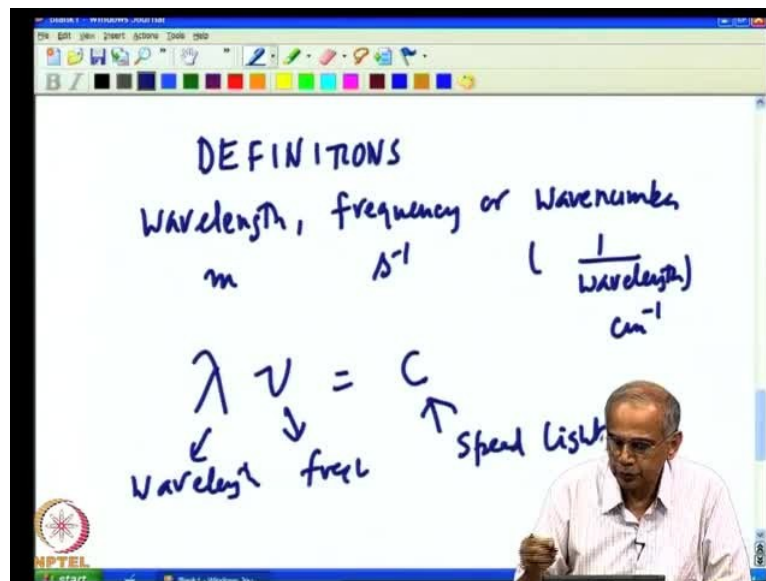 Blank1 - Windows Journal
File Edit View Insert Actions Tools Help
B I
DEFINITIONS
Wavelength, frequency or Wavenumber
m s⁻¹ ( 1
Wavelength)
cm⁻¹
λ ν = C
Wavelength speed light
NPTEL
start